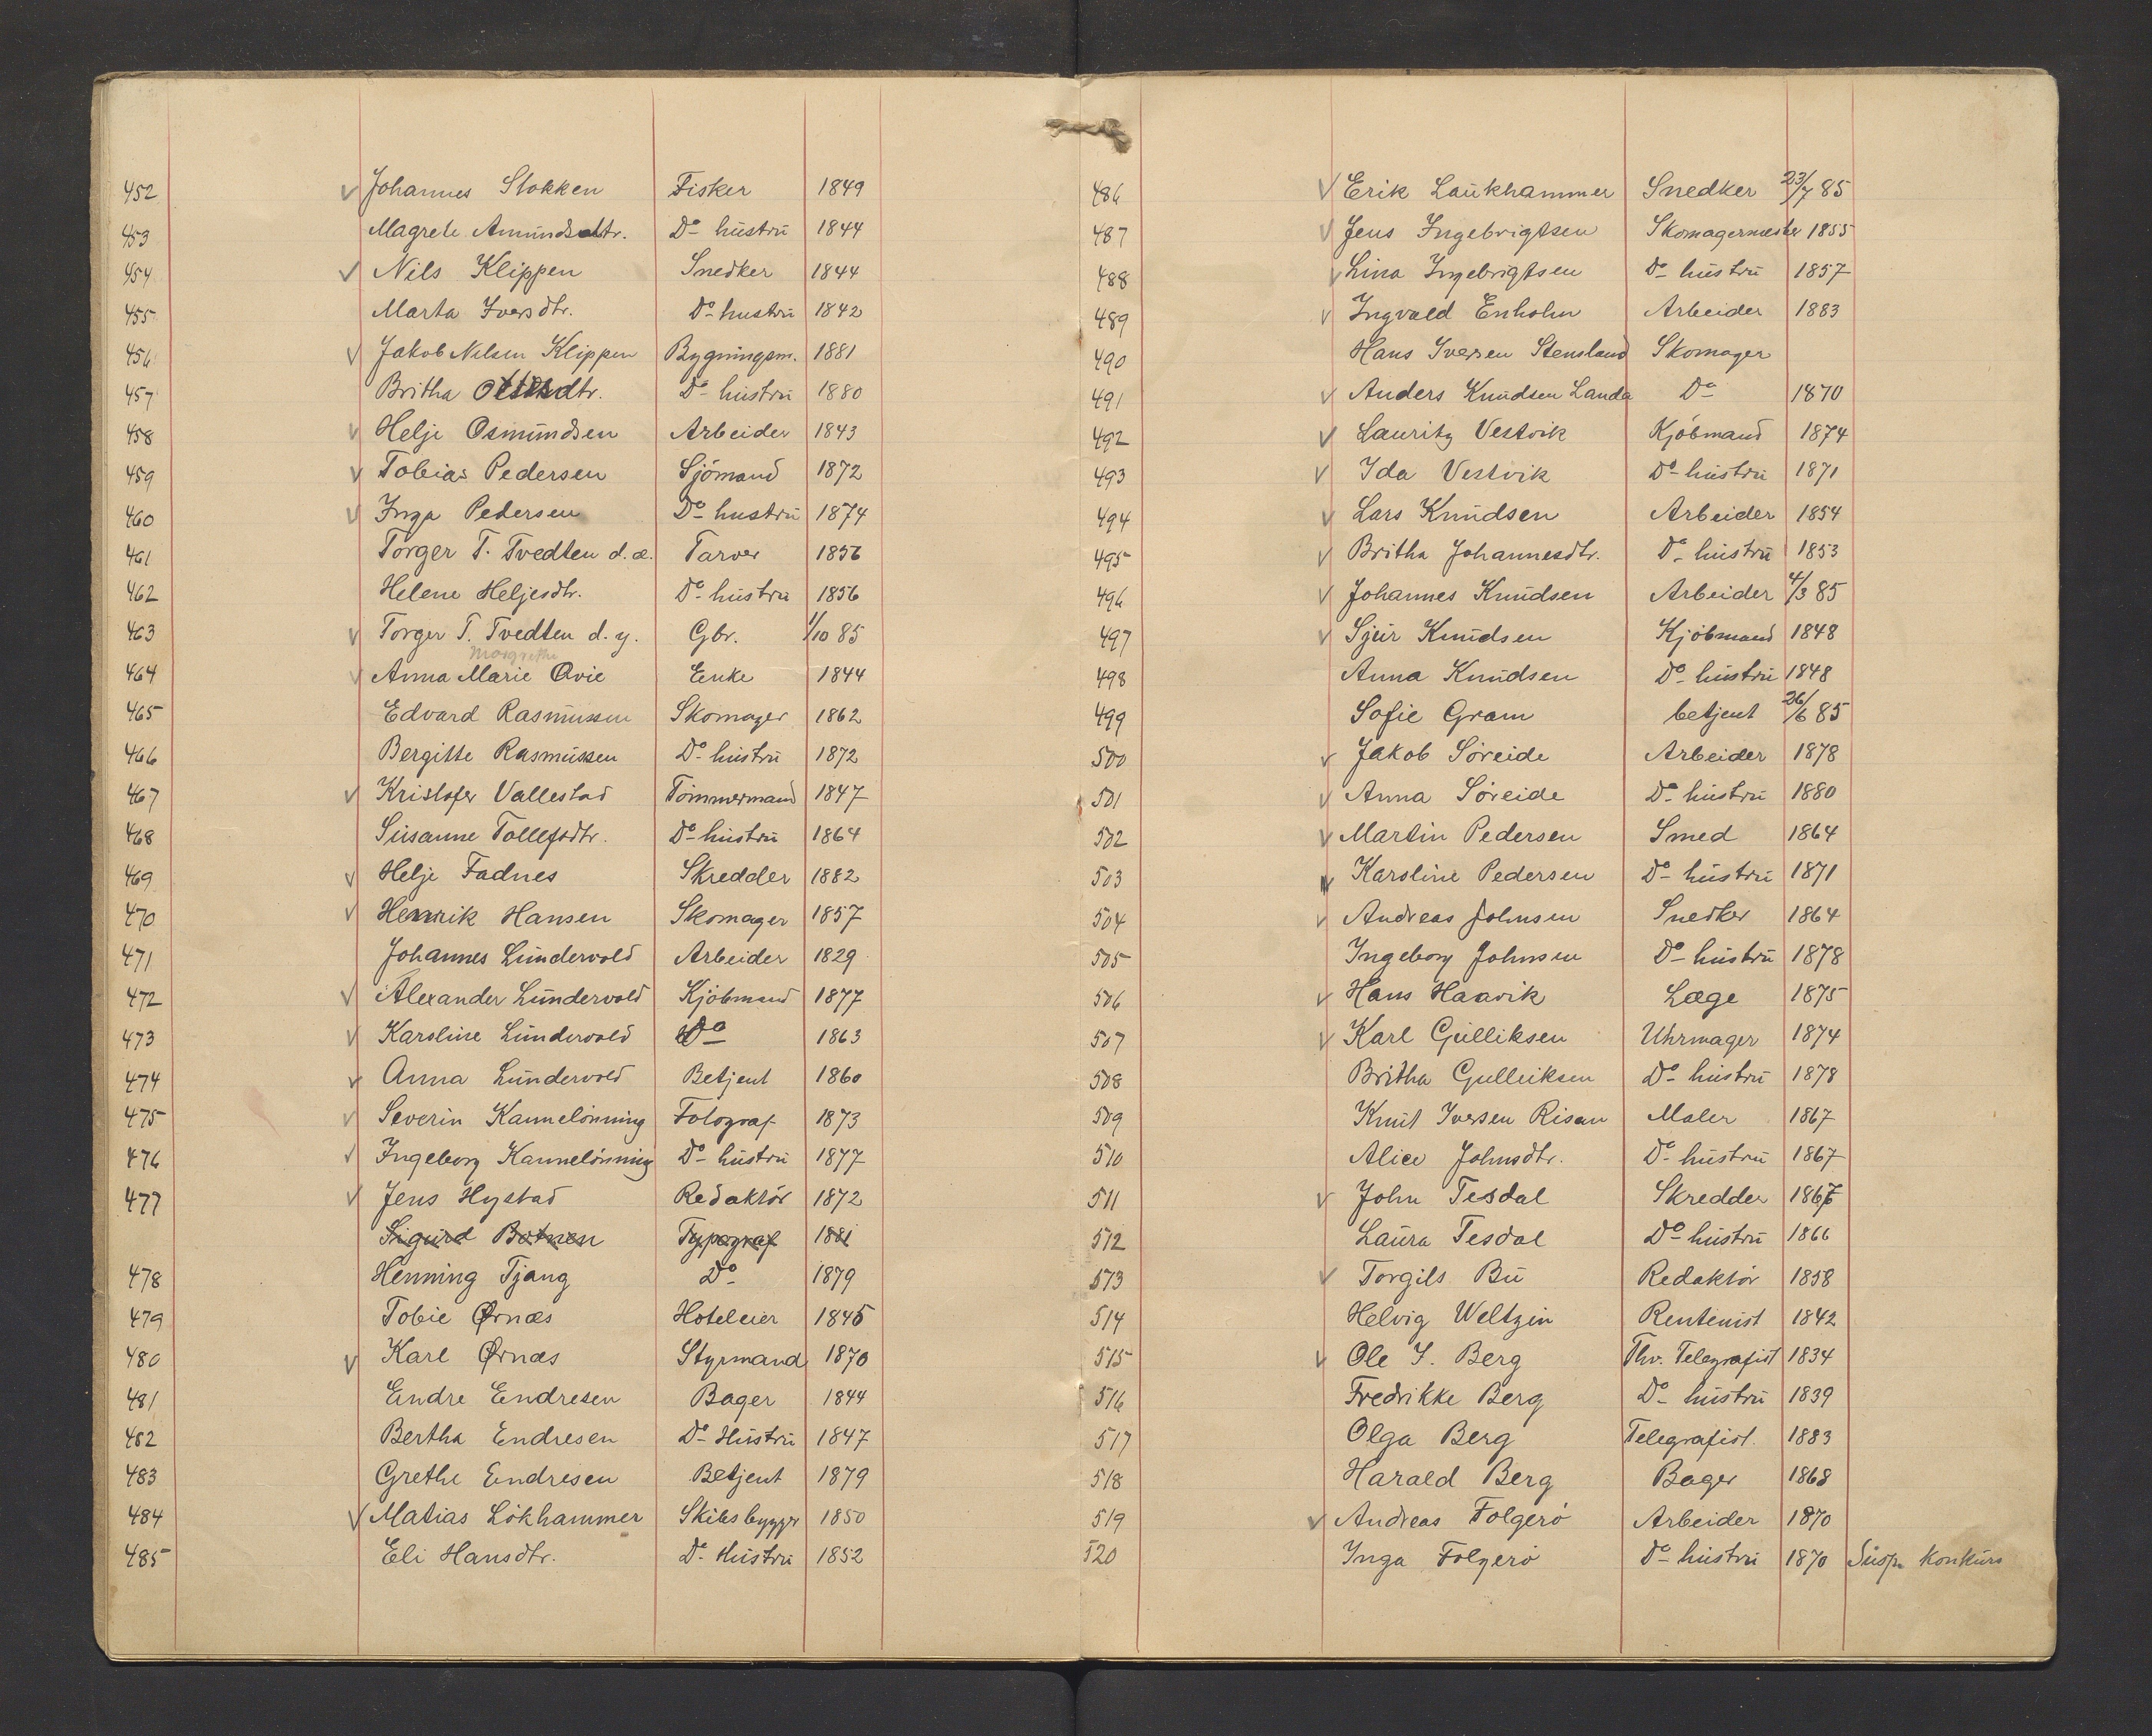 452 v Johannes Stokken Fisker 1849
453 Magrete Amundsdtr. Do hustru 1844
454 v Nils Klippen Snedker 1844
455 Marta Iversdtr. Do hustru 1842
456 v Jakob Nilsen Klippen Bygningsm. 1881
457 Britha Do hustru 1880
458 v Helje Osmundsen Arbeider 1843
459 v Tobias Pedersen Sjömand 1872
460 v Inga Pedersen Do hustru 1874
461 Torger T. Tvedten d.æ. Tarver 1856
462 Helene Heljesdtr. Do hustru 1856
463 v Torger T. Tvedten d.y. Gbr. 1/10 85
Margrethe
464 v Anna Marie Qvie Enke 1844
465 Edvard Rasmussen Skomager 1862
466 Bergitte Rasmussen Do hustru 1872
467 v Kristofer Vallestad Tömmermand 1847
468 Susanne Tollefsdtr. Do hustru 1864
469 v Helje Fadnes Skredder 1882
470 v Henrik Hansen Skomager 1857
471 Johannes Lundervold Arbeider 1829
472 v Alexander Lundervold Kjöbmand 1877
473 v Karoline Lundervold Do 1863
474 v Anna Lundervold Betjent 1860
475 v Severin Kannelönning Fotograf 1873
476 v Ingeborg Kannelönning Do hustru 1877
477 v Jens Hystad Redaktör 1872
Sigurd Botnen Typograf 1881
478 Henning Tjang Do 1879
479 Tobie Ørnæs Hoteleier 1845
480 v Karl Ørnæs Styrmand 1870
481 Endre Endresen Bager 1844
482 Bertha Endresen Do Hustru 1847
483 Grethe Endresen Betjent 1879
484 v Matias Lökhammer Skibsbygger 1850
485 Eli Hansdtr. Do Hustru 1852
486 v Erik Laukhammer Snedker 23/7 85
487 v Jens Ingebrigtsen Skomagermester 1855
488 v Lina Ingebrigtsen Do hustru 1857
489 v Ingvald Enholm Arbeider 1883
490 Hans Iversen Stensland Skomager
491 v Anders Knudsen Landa Do 1870
492 v Lauritz Vestvik Kjöbmand 1874
493 v Ida Vestvik Do hustru 1871
494 v Lars Knudsen Arbeider 1854
495 v Britha Johannesdtr. Do hustru 1853
496 v Johannes Knudsen Arbeider 4/3 85
497 v Sjur Knudsen Kjöbmand 1848
498 Anna Knudsen Do hustru 1848
499 Sofie Gram betjent 26/6 85
500 v Jakob Söreide Arbeider 1878
501 v Anna Söreide Do hustru 1880
502 v Martin Pedersen Smed 1864
503 v Karoline Pedersen Do hustru 1871
504 v Andreas Johnsen Snedker 1864
505 Ingeborg Johnsen Do hustru 1878
506 v Hans Haavik Læge 1875
507 v Karl Gulliksen Uhrmager 1874
508 Britha Gulleiksen Do hustru 1878
509 Knut Iversen Risan Maler 1867
510 Alice Johnsdtr. Do hustru 1867
511 v John Tesdal Skredder 1867
512 Laura Tesdal Do hustru 1866
513 v Torgils Bu Redaktör 1858
514 Helvig Weltzin Rentenist 1842
515 v Ole J. Berg Fhv. Telegrafist 1834
516 Fredrikke Berg Do hustru 1839
517 Olga Berg Telegrafist. 1883
518 Harald Berg Bager 1868
519 v Andreas Folgerö Arbeider 1870
520 Inga Folgerö Do hustru 1870 Susp. Konkurs